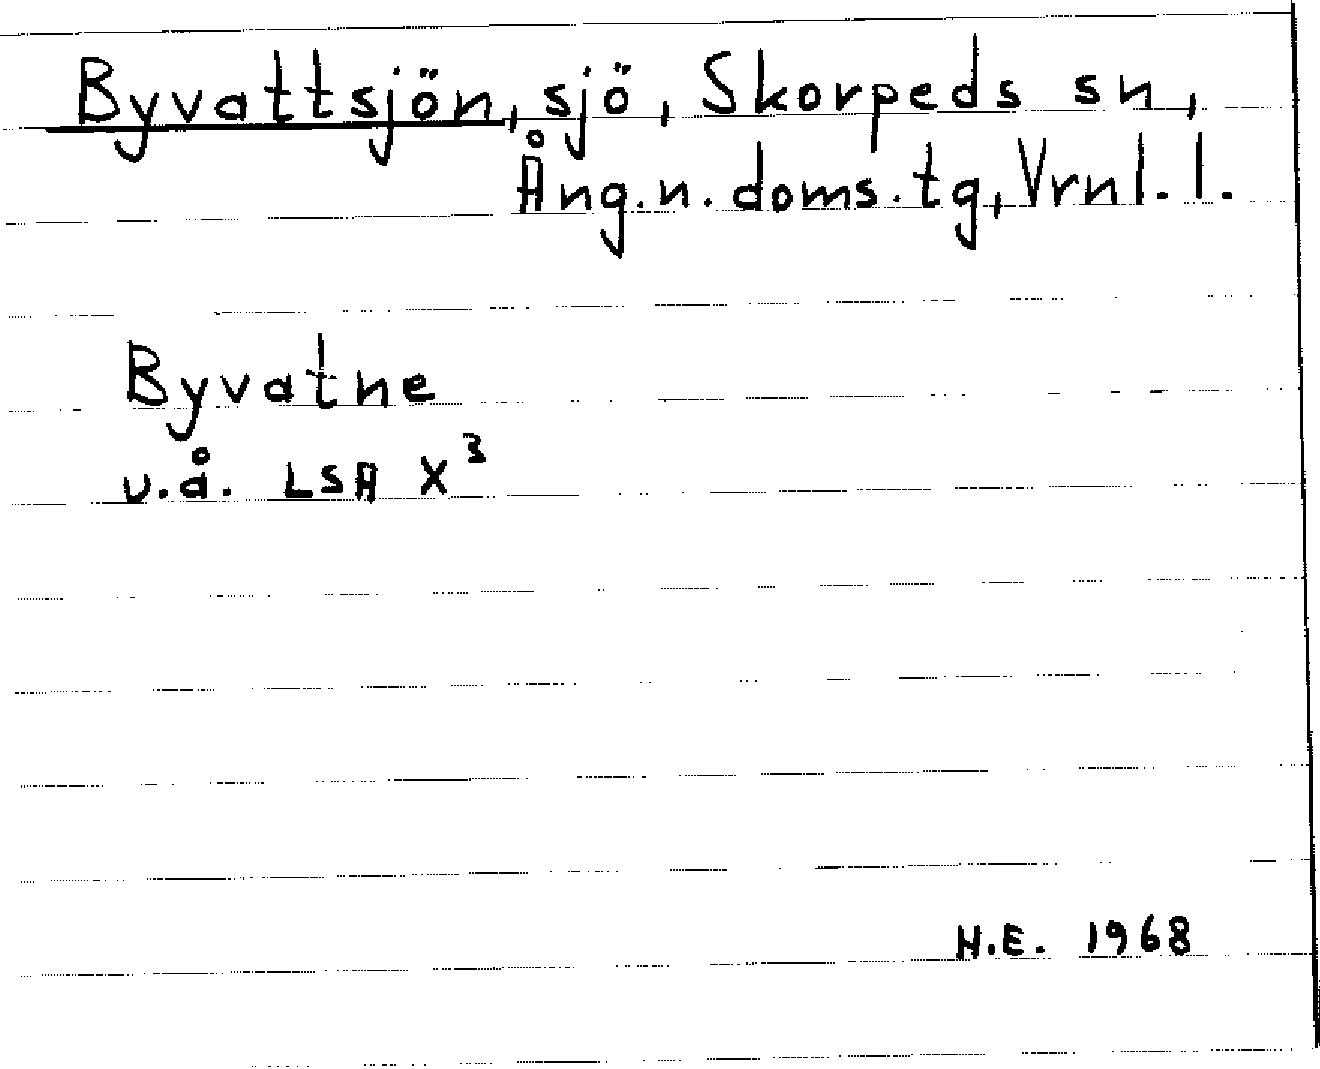 Byvattsjön, sjö, Skorpeds sn,
Ång.n.doms.tg, Vrnl.l.
Byvatne
u.å. LSA X³
H.E. 1968